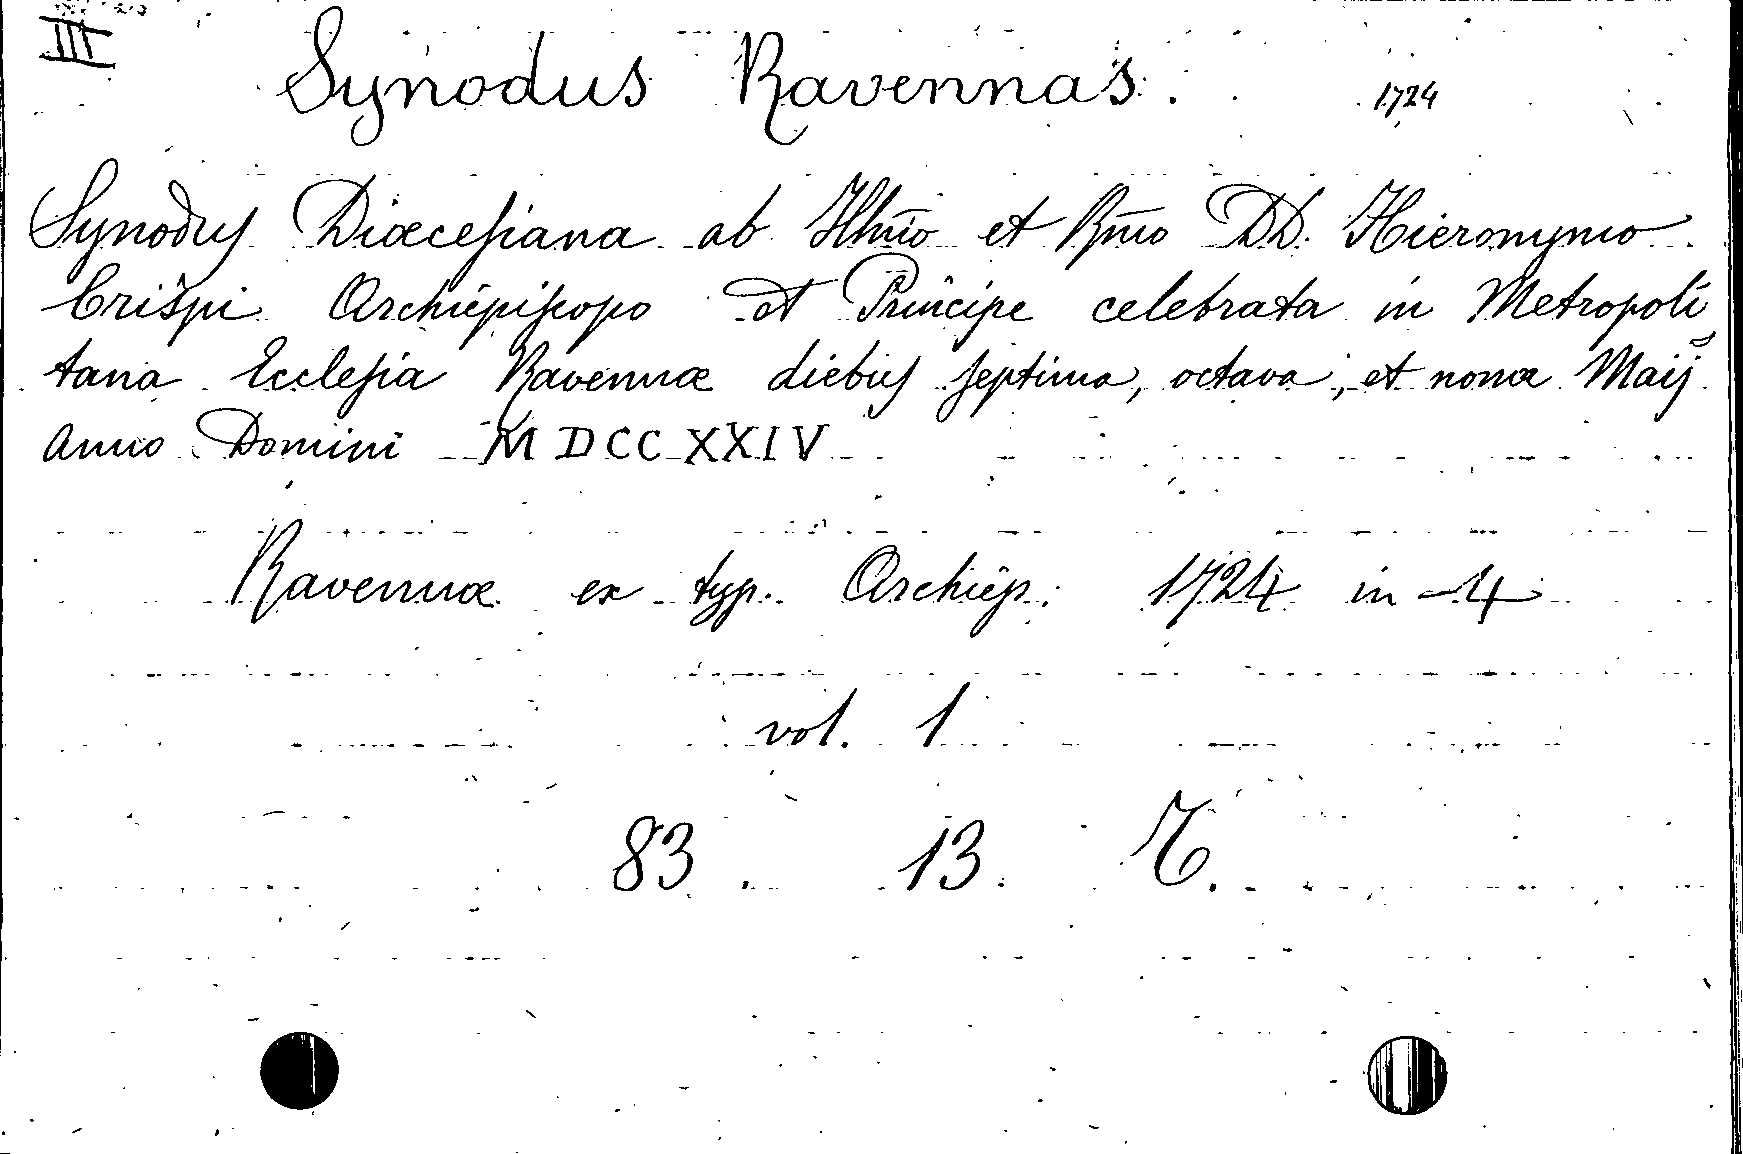 III
Synodus Ravennas. 1724
Synodus Diœcesiana ab Illm̄o et Rm̄o DD. Hieronymo
Crispi Archiepiscopo et Principe celebrata in Metropoli
tana Ecclesia Ravennæ diebus septima, octava, et nona Maij
anno Domini MDCCXXIV
Ravennæ ex typ. Archiep. 1724 in-4
vol. 1
83. 13.